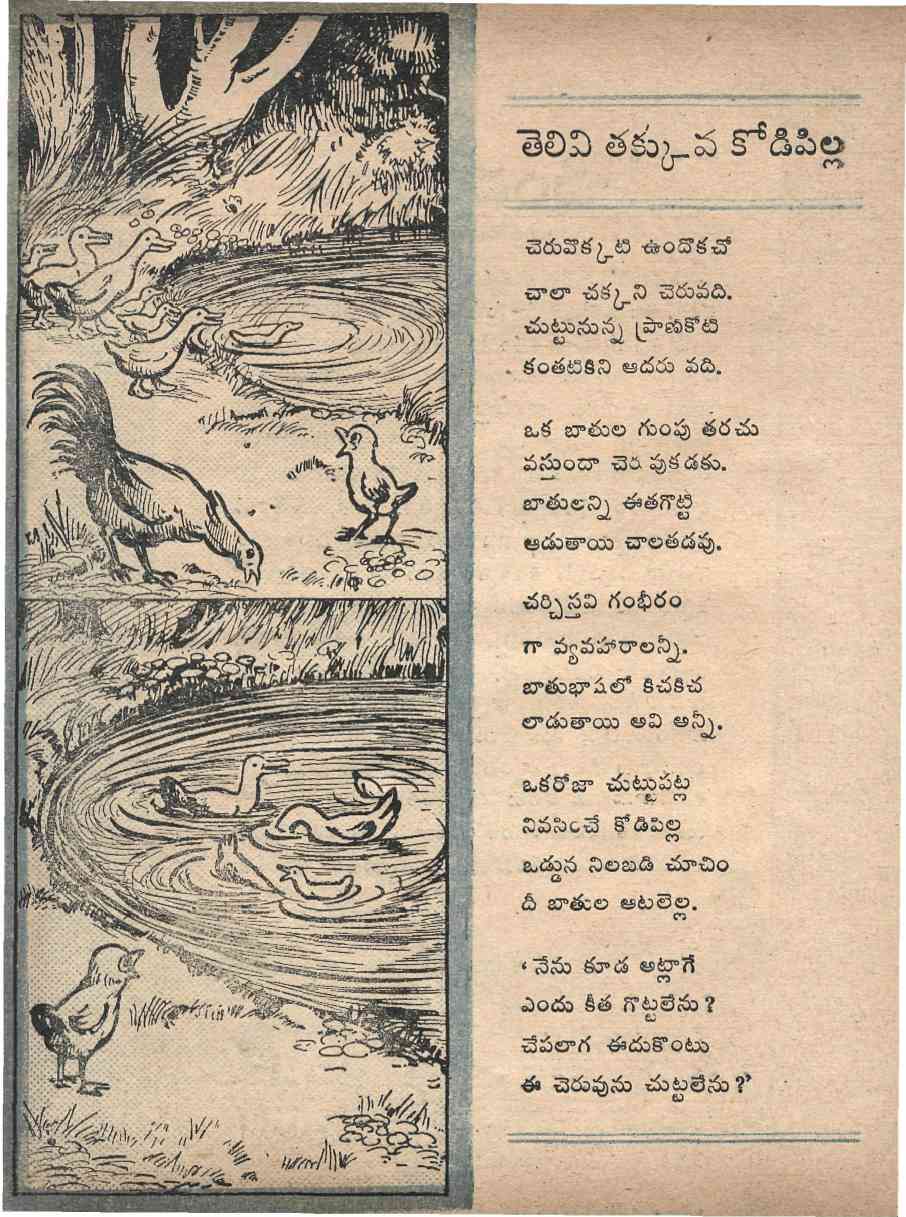 తెలివి తక్కువ కోడిపిల్ల
చెరువొక్కటి ఉందొకచో
చాలా చక్కని చెరువది.
చుట్టునున్న ప్రాణికోటి
కంతటికిని ఆదరు వది.
ఒక బాతుల గుంపు తరచు
వస్తుందా చెరువుకడకు.
బాతులన్ని ఈతగొట్టి
ఆడుతాయి చాలతడవు.
చర్చిస్తవి గంభీరం
గా వ్యవహారాలన్నీ.
బాతుభాషలో కిచకిచ
లాడుతాయి అవి అన్నీ.
ఒకరోజా చుట్టుపట్ల
నివసించే కోడిపిల్ల
ఒడ్డున నిలబడి చూచిం
దీ బాతుల ఆటలెల్ల.
‘నేను కూడ అట్లాగే
ఎందు కీత గొట్టలేను?
చేపలాగ ఈదుకొంటు
ఈ చెరువును చుట్టలేను?’